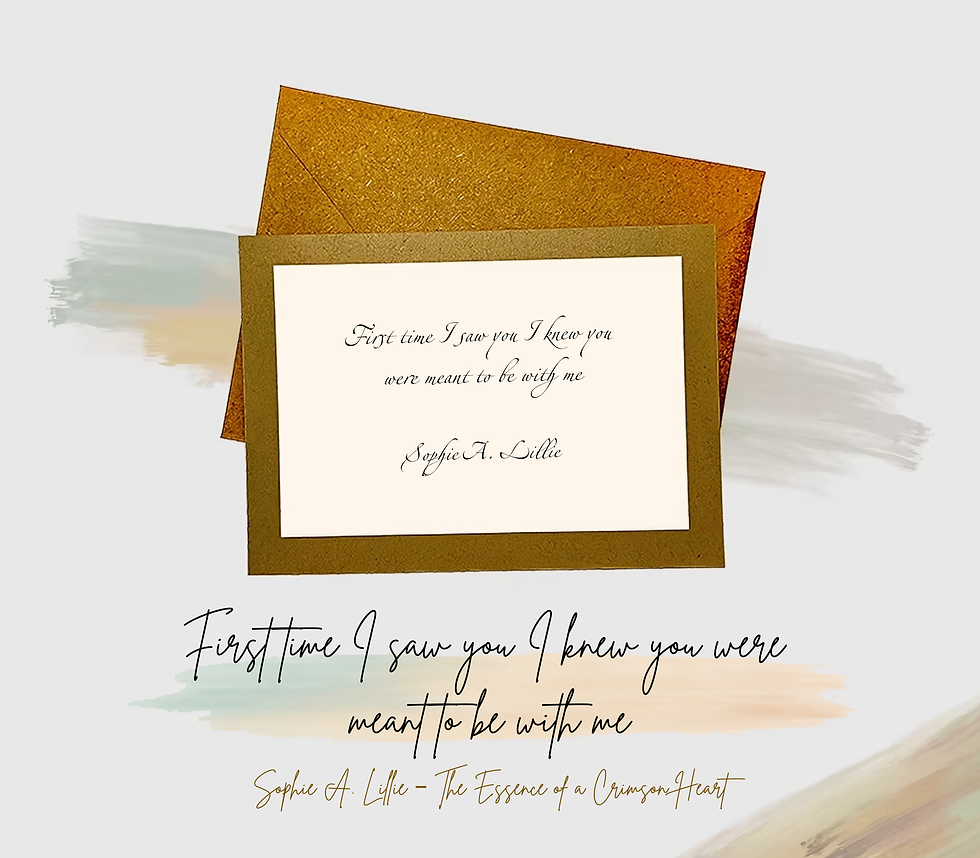 First time I saw you I knew you
were meant to be with me
Sophie A. Lillie
First time I saw you I knew you were
meant to be with me
Sophie A. Lillie – The Essence of a Crimson Heart